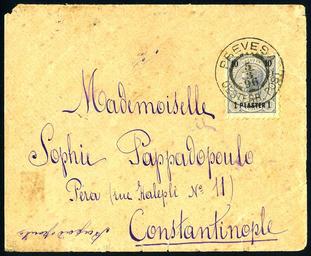 PREVESA
10 10
5
3
95
1 PIASTER 1
Mademoiselle
Sophie Pappadopoulo
Pera (rue Kalepli No 11)
Constantinople